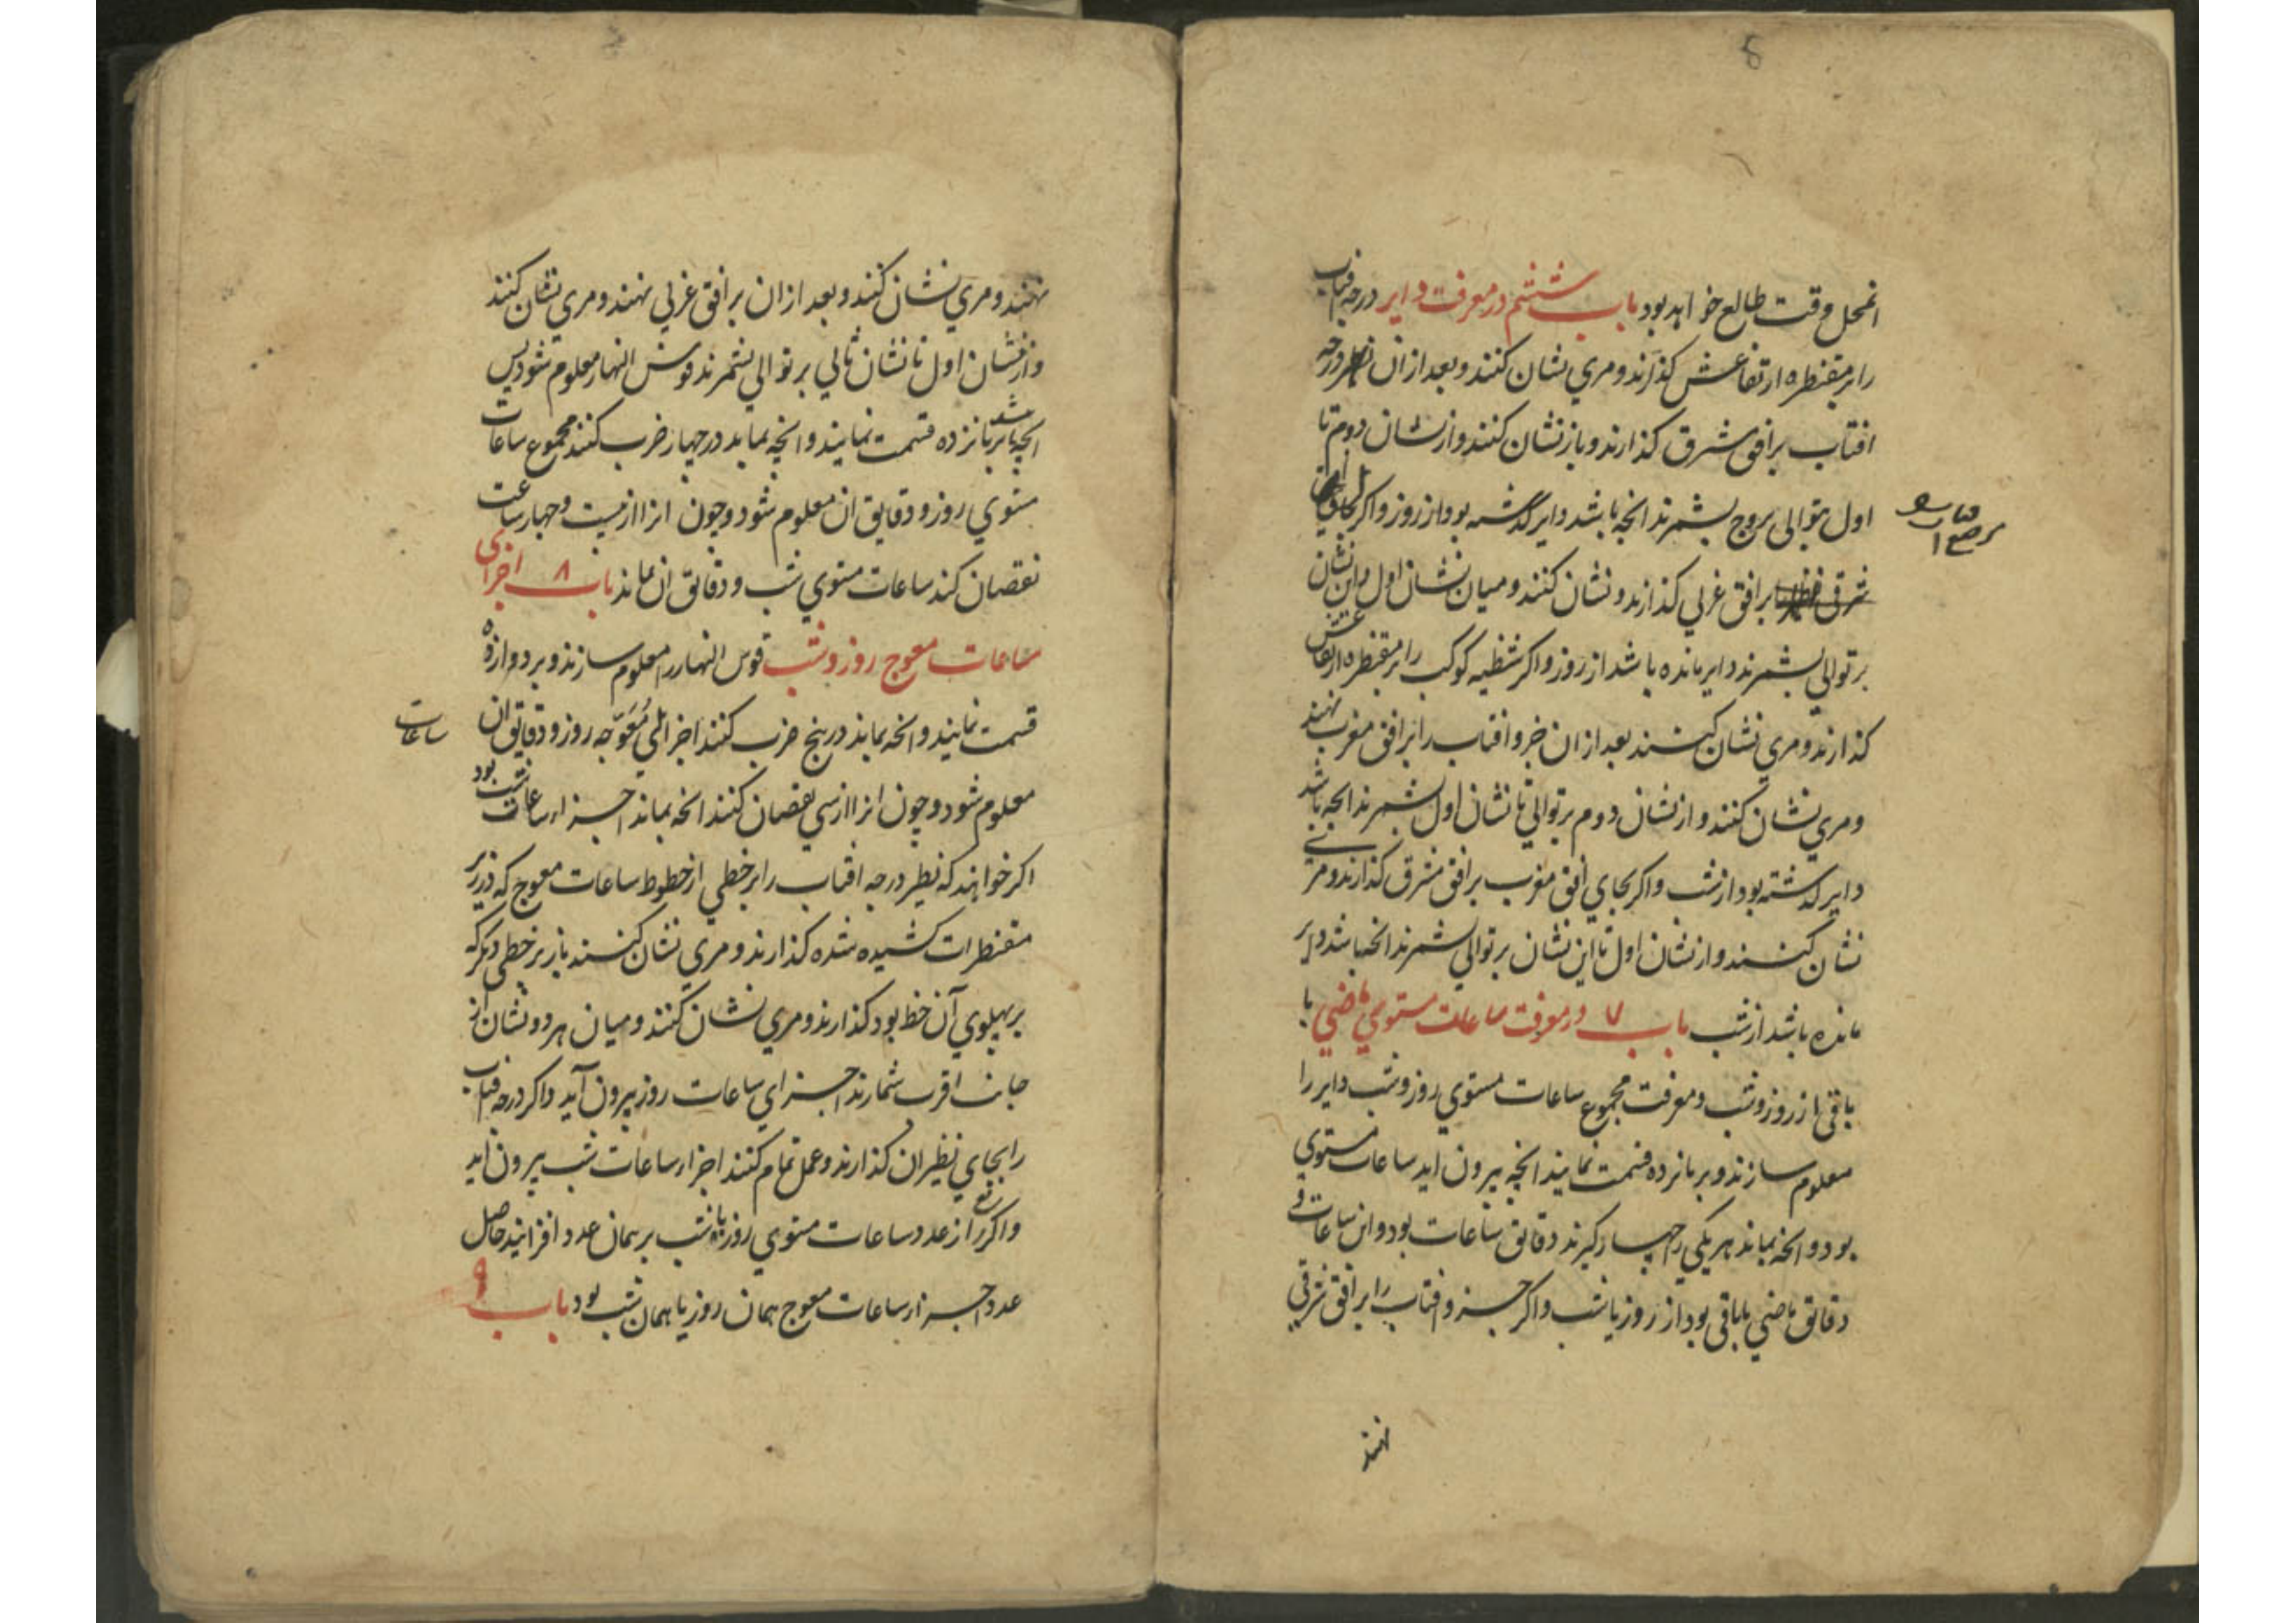 انمحل وقت طالع خواهد بود باب ششم در معرفت دایر درجه افتاب
را بر مقنطره ارتفاعش کذارند و مري نشان کنند و بعد ازان درجه
افتاب بر افق مشرق کذارند و باز نشان کنند و از نشان دوم تا
اول بتوالی بروج بشمرند انچه باشد دایر کذشته بود از روز و اکر بجاي
بر افق غربي کذارند و نشان کنند و میان نشان اول و این نشان
بر توالي بشمرند دایر مانده باشد از روز و اکر شظیه کوکب را بر مقنطره ارتفاعش
کذارند و مري نشان کنند بعد ازان جزو افتاب را بر افق مغرب نهند
و مري نشان کنند و از نشان دوم بر توالي تا نشان اول بشمرند انچه باشد
دایر کذشته بود از شب و اکر بجاي افق مغرب بر افق مشرق کذارند و مري
نشان کنند و از نشان اول تا این نشان بر توالي بشمرند انچه باشد دایر
مانده باشد از شب باب ۷ در معرفت ساعات مستوي ماضي یا
باقي از روز و شب و معرفت مجموع ساعات مستوي روز و شب دایر را
معلوم سازند و بر پانزده قسمت نمایند انچه بیرون اید ساعات مستوي
بود و انچه بماند هر یکي را چهار کیرند دقایق ساعات بود و این ساعات و
دقایق ماضي یا باقي بود از روز یا شب و اکر جزو افتاب را بر افق شرقي
نهند
نهند و مري نشان کنند و بعد ازان بر افق غربي نهند و مري نشان کنند
و از نشان اول تا نشان ثاني بر توالي بشمرند قوس النهار معلوم شود پس
انچه باشد بر پانزده قسمت نمایند و انچه بماند در چهار ضرب کنند مجموع ساعات
مستوي روز و دقایق ان معلوم شود و چون انرا از بیست و چهار ساعت
نقصان کنند ساعات مستوي شب و دقایق ان ماند باب ۸ اجزای
ساعات معوج روز و شب قوس النهار را معلوم سازند و بر دوازده
قسمت نمایند و انچه بماند در پنج ضرب کنند اجزائي مُعَوّجه روز و دقایق ان
ساعات
معلوم شود و چون انرا از سي نقصان کنند انچه بماند اجزاء ساعات شب بود
اکر خواهند که نظیر درجه افتاب را بر خطي از خطوط ساعات معوج که در زیر
مقنطرات کشیده شده کذارند و مري نشان کنند باز بر خطي دیکر که
بر پهلوي آن خط بود کذارند و مري نشان کنند و میان هر دو نشان از
جانب اقرب شمارند اجزاي ساعات روز بیرون آید و اکر درجه افتاب
را بجاي نظیر ان کذارند و عمل تمام کنند اجزاء ساعات شب بیرون اید
و اکر ربع از عدد ساعات مستوي روز یا شب بر همان عدد افزایند حاصل
عدد اجزاء ساعات معوج همان روز یا همان شب بود باب ۹